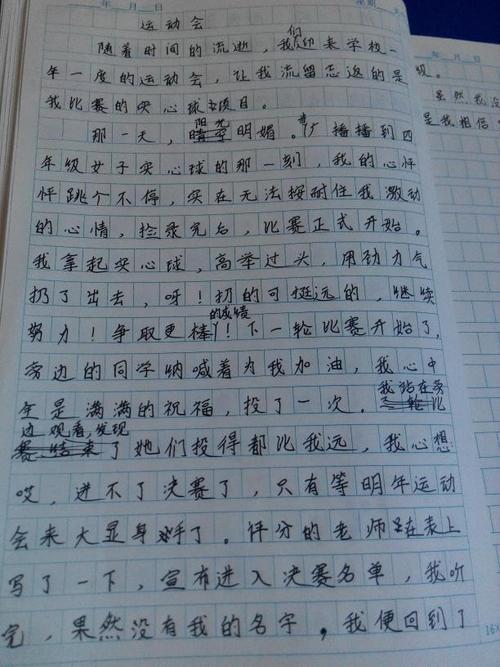 年 月 日
星期
运动会
随着时间的流逝，我们迎来学校一
年一度的运动会，让我流留忘返的是
我比赛的实心球项目。
那一天，阳光明媚。广播播到四
年级女子实心球的那一刻，我的心怦
怦跳个不停，实在无法按耐住我激动
的心情，捡录完后，比赛正式开始。
我拿起实心球，高举过头，用劲力气
扔了出去，呀！扔的可挺远的，继续
努力！争取更棒的成绩！下一轮比赛开始了，
旁边的同学呐喊着为我加油，我心中
全是满满的祝福，投了一次。我站在旁
边观看，发现了她们投得都比我远，我心想：
哎，进不了决赛了，只有等明年运动
会来大显身手了。评分的老师在表上
写了一下，宣布进入决赛名单，我听
完，果然没有我的名字，我便回到了
年 月 日
级。
虽然我没
是我相信